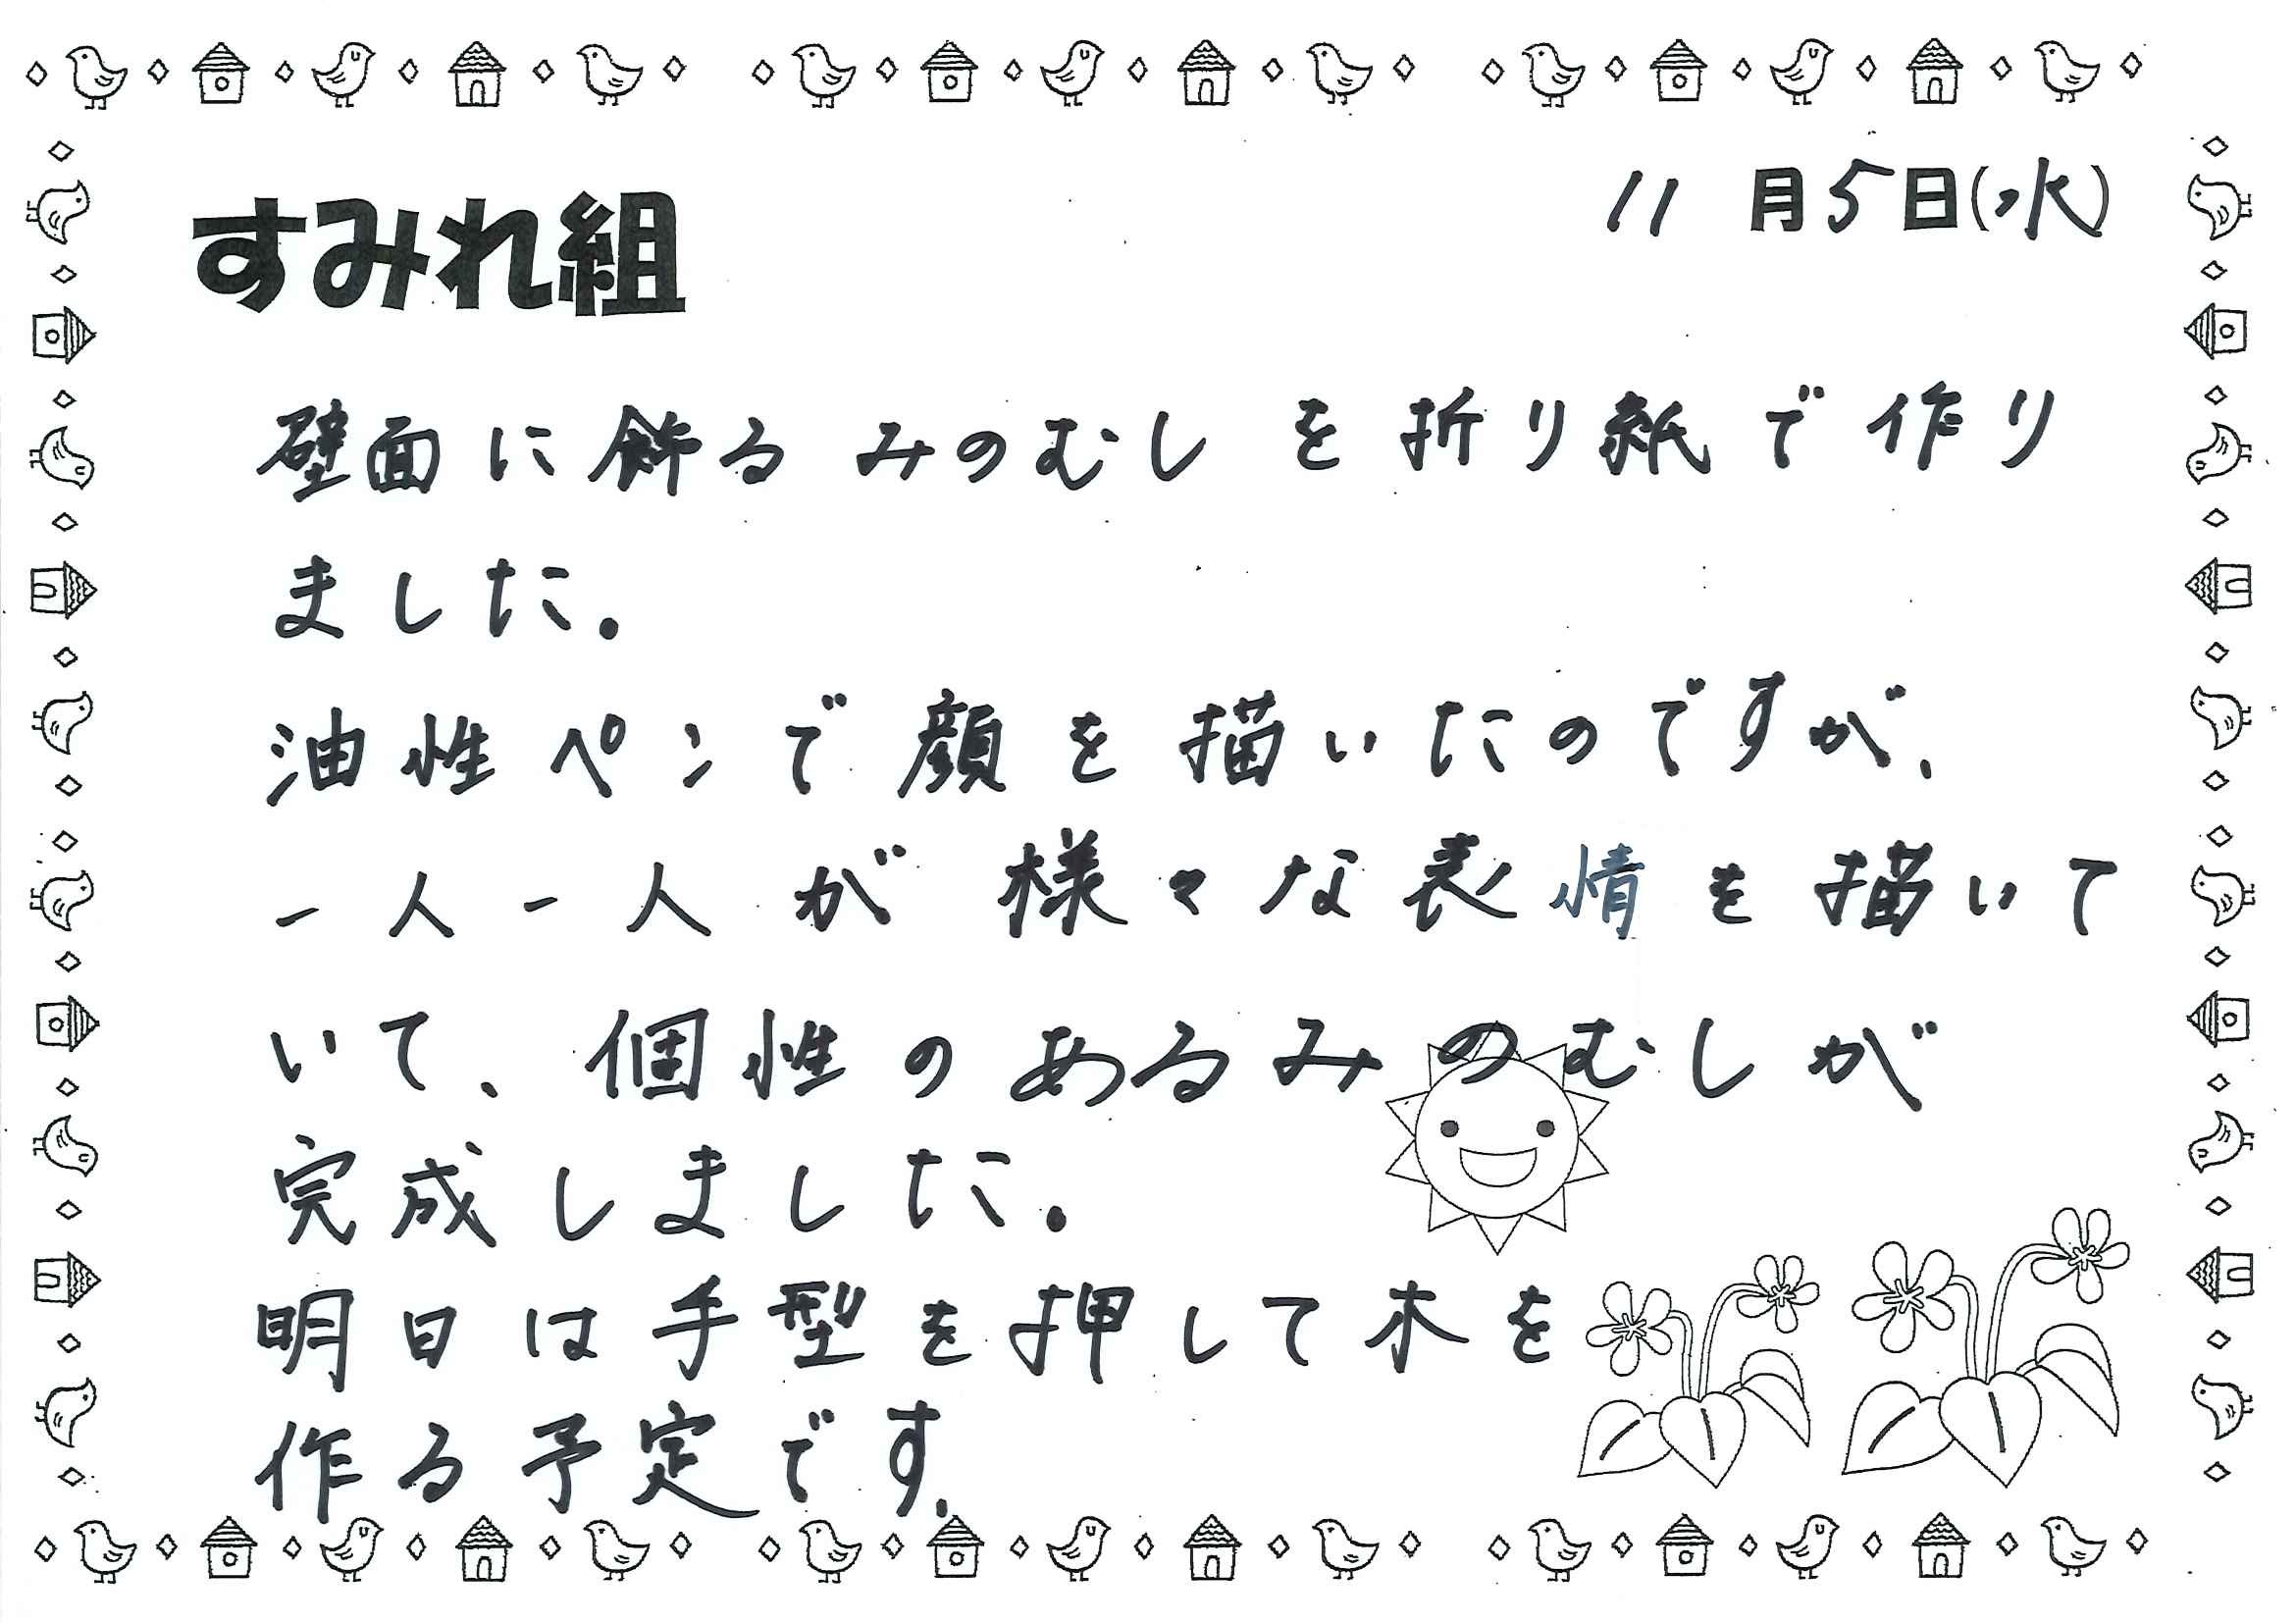 すみれ組
11月5日(水)
壁面に飾るみのむしを折り紙で作り
ました。
油性ペンで顔を描いたのですが、
一人一人が様々な表情を描いて
いて、個性のあるみのむしが
完成しました。
明日は手型を押して木を
作る予定です。